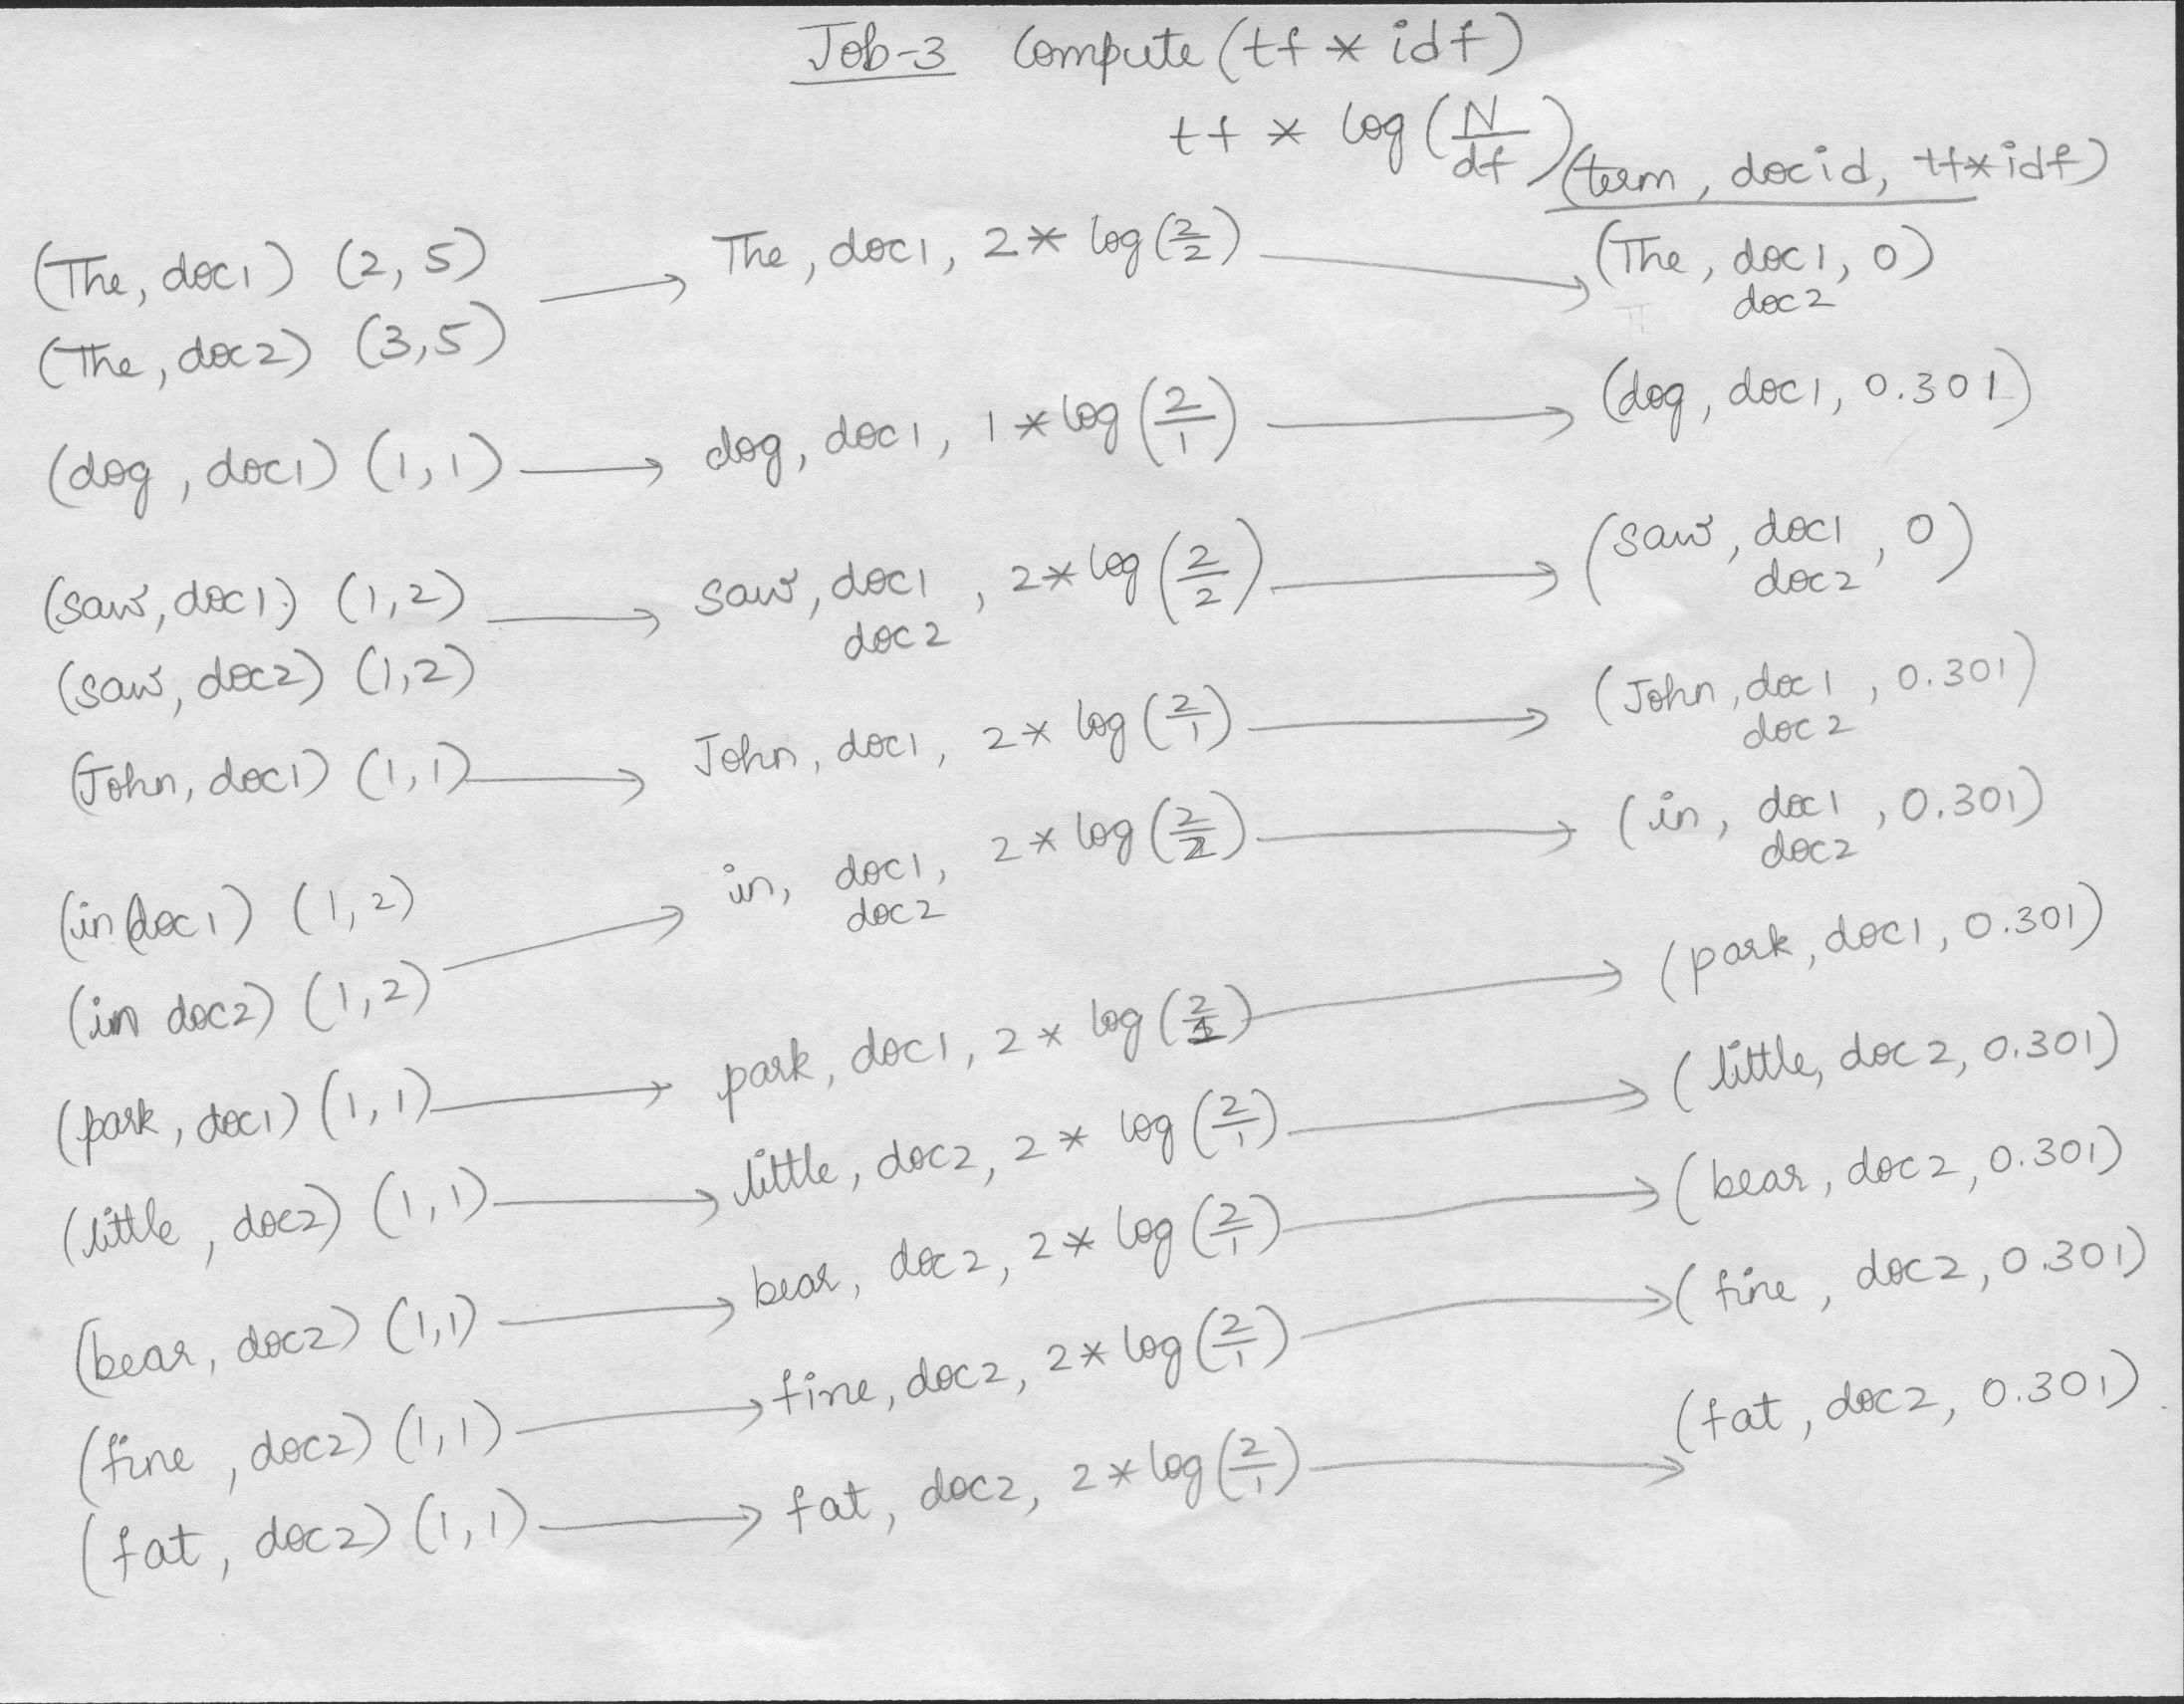 Job-3 Compute (tf * idf)
tf * log (N/df)
(term, docid, tf*idf)
(The, doc1) (2, 5) → The, doc1, 2 * log(2/2) → (The, doc1, 0)
doc2
(The, doc2) (3,5)
(dog, doc1) (1,1) → dog, doc1, 1 * log(2/1) → (dog, doc1, 0.301)
(saw, doc1) (1,2) → saw, doc1, 2* log(2/2) → (saw, doc1, 0)
doc2 doc2
(saw, doc2) (1,2)
(John, doc1) (1,1) → John, doc1, 2* log(2/1) → (John, doc1, 0.301)
doc2
(in doc1) (1,2) → in, doc1, 2 * log(2/2) → (in, doc1, 0.301)
doc2 doc2
(in doc2) (1,2)
(park, doc1) (1,1) → park, doc1, 2 * log(2/1) → (park, doc1, 0.301)
(little, doc2) (1,1) → little, doc2, 2 * log(2/1) → (little, doc2, 0.301)
(bear, doc2) (1,1) → bear, doc2, 2* log(2/1) → (bear, doc2, 0.301)
(fine, doc2) (1,1) → fine, doc2, 2* log(2/1) → (fine, doc2, 0.301)
(fat, doc2) (1,1) → fat, doc2, 2* log(2/1) → (fat, doc2, 0.301)